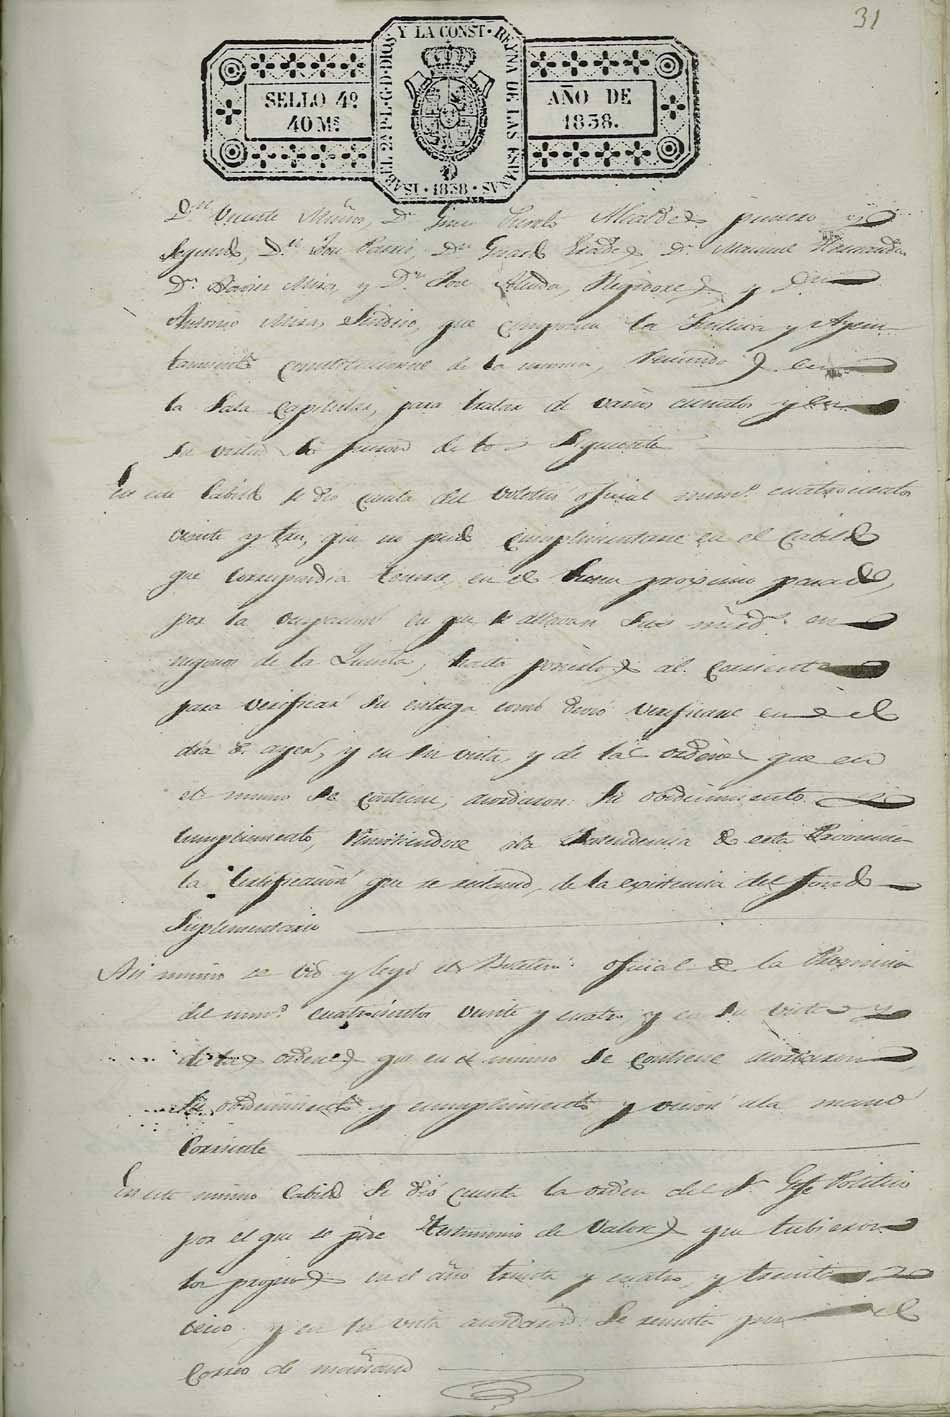 31
ISABEL 2ª P.L.G.D.DIOS Y LA CONST. REYNA DE LAS ESPAÑAS · 1838 ·
SELLO 4º 40 Mˢ AÑO DE 1838.
Dⁿ Vicente Dⁿ Gines Alcaldes primero y
Segundo, Dⁿ Dⁿ Dⁿ Manuel Hernandez
Dⁿ Javier Mira, y Dⁿ Jose Regidores y Dⁿ
Antonio Mira Sindico, que componen la Justicia y Ayun
tamiento constitucional de la misma, reunidos en
la Sala Capitular, para tratar de varios asuntos y en
su virtud lo hicieron de lo Siguiente
En este Cabildo se dio cuenta del boletin oficial numº cuatrocientos
veinte y tres, que no pudo cumplimentarse en el Cabildo
que correspondia tenerse en el proximo pasado,
por la ocupacion en que se allavan Sus mrds en
de la Quinta, hasta ponerlos al corriente
para verificar su entrega como devió verificarse en el
dia de ayer, y en su vista, y de las ordenes que en
el mismo se contiene, acordaron: Su obedecimiento y
cumplimiento, remitiendose ala Intendencia de esta Provincia
la Certificacion que se reclama, de la existencia del fondo
Suplementario
Asi mismo se vió y leyó el Boletin oficial de la Provincia
del numº cuatrocientos veinte y cuatro y en su vista y
de las ordenes que en el mismo se contiene acordaron
Su obedecimiento y cumplimiento y union ala mano
Corriente
En este mismo Cabildo se dió cuenta la orden del Sr Gefe Politico
por el que se pide testimonio de Valores que tubieron
los propios en el año treinta y cuatro, y treinta y
cinco, y en su vista acordaron: Se remita por el
Correo de mañana